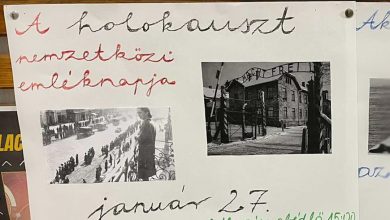 A holokauszt
nemzetközi
emléknapja
január 27.
15:00
LAC
Ak
az